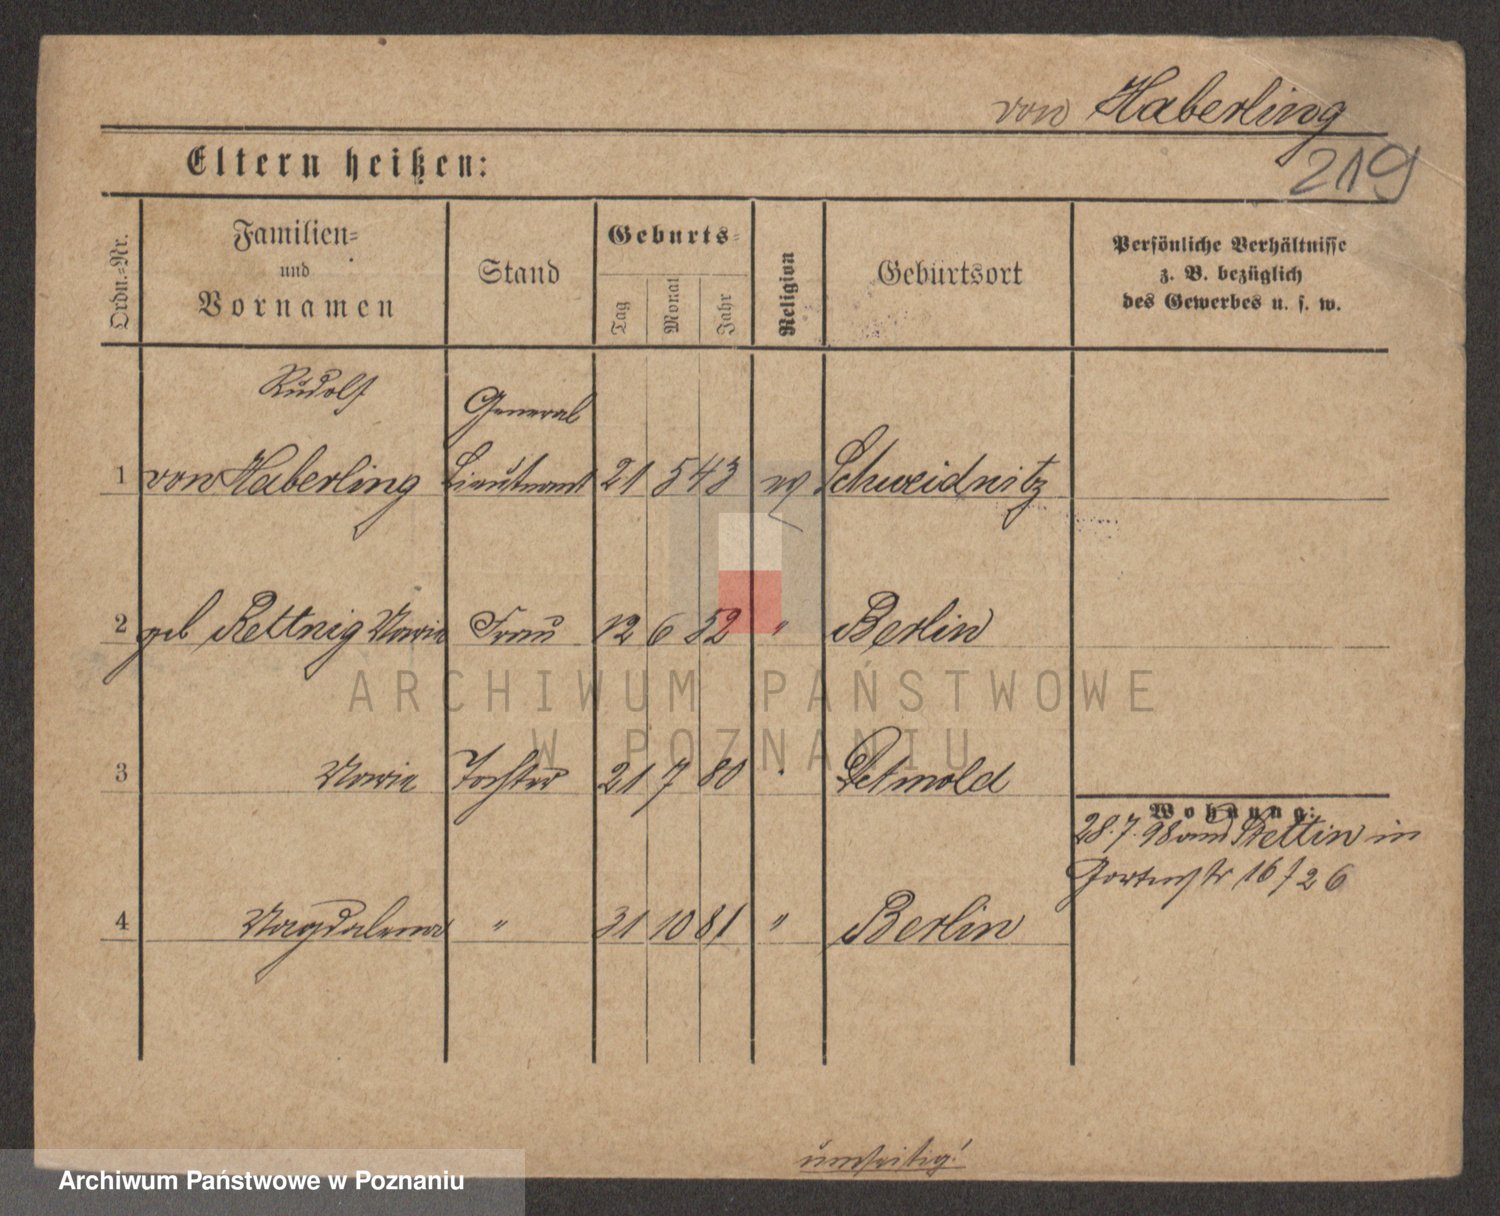 von Haberling
219
Eltern heißen:
Ordn.=Nr.
Familien=
und
Vornamen
Stand
Geburts=
Tag
Monat
Jahr
Religion
Geburtsort
Persönliche Verhältnisse
z. B. bezüglich
des Gewerbes u. s. w.
Rudolf
General
1 von Haberling Lieutnant 21 5 43 Schweidnitz
2 geb Rettnig Marie Frau 12 6 52 " Berlin
3 Marie Tochter 21 7 80 Detmold
Wohnung:
28.7.98 Stettin in
Gartenstr 16 / 26
4 Magdalena " 31 10 81 " Berlin
umseitig!
ARCHIWUM PAŃSTWOWE
W POZNANIU
Archiwum Państwowe w Poznaniu